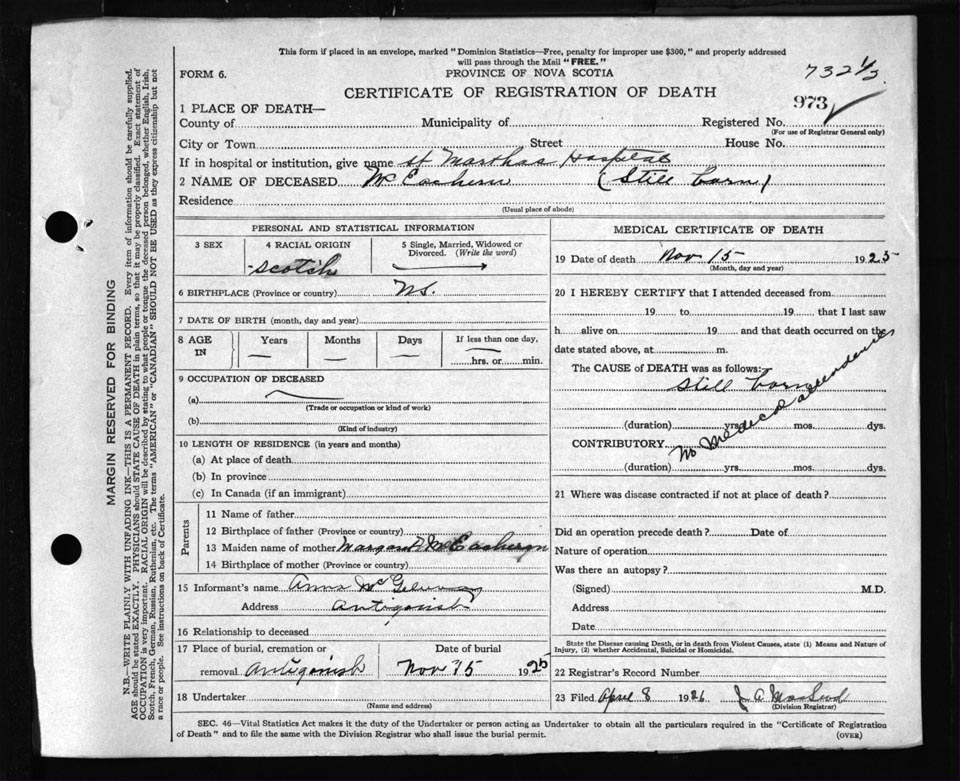 This form if placed in an envelope, marked "Dominion Statistics—Free, penalty for improper use $300," and properly addressed
will pass through the Mail "FREE."
FORM 6.
PROVINCE OF NOVA SCOTIA
732 1/3
CERTIFICATE OF REGISTRATION OF DEATH
973
1 PLACE OF DEATH—
County of
Municipality of
Registered No.
(For use of Registrar General only)
City or Town
Street
House No.
If in hospital or institution, give name St Marthas Hospital
2 NAME OF DECEASED McEachern (Still born)
Residence
(Usual place of abode)
PERSONAL AND STATISTICAL INFORMATION
3 SEX
4 RACIAL ORIGIN
Scotch
5 Single, Married, Widowed or
Divorced. (Write the word)
6 BIRTHPLACE (Province or country) NS.
7 DATE OF BIRTH (month, day and year)
8 AGE
IN
Years
Months
Days
If less than one day,
hrs. or min.
9 OCCUPATION OF DECEASED
(a)
(Trade or occupation or kind of work)
(b)
(Kind of industry)
10 LENGTH OF RESIDENCE (in years and months)
(a) At place of death
(b) In province
(c) In Canada (if an immigrant)
Parents
11 Name of father
12 Birthplace of father (Province or country)
13 Maiden name of mother Margaret McEachern
14 Birthplace of mother (Province or country)
15 Informant's name Anna McGillivray
Address Antigonish
16 Relationship to deceased
17 Place of burial, cremation or
removal Antigonish
Date of burial
Nov 15 1925
18 Undertaker
(Name and address)
MEDICAL CERTIFICATE OF DEATH
19 Date of death Nov 15 1925
(Month, day and year)
20 I HEREBY CERTIFY that I attended deceased from
19 to 19 that I last saw
h alive on 19 and that death occurred on the
date stated above, at m.
The CAUSE of DEATH was as follows:
Still born
(duration) yrs. mos. dys.
CONTRIBUTORY
No Medical attendance
(duration) yrs. mos. dys.
21 Where was disease contracted if not at place of death?
Did an operation precede death? Date of
Nature of operation
Was there an autopsy?
(Signed) M.D.
Address
Date
State the Disease causing Death, or in death from Violent Causes, state (1) Means and Nature of
Injury, (2) whether Accidental, Suicidal or Homicidal.
22 Registrar's Record Number
23 Filed April 8 1926 J A MacLeod
(Division Registrar)
SEC. 46—Vital Statistics Act makes it the duty of the Undertaker or person acting as Undertaker to obtain all the particulars required in the "Certificate of Registration
of Death" and to file the same with the Division Registrar who shall issue the burial permit.
(OVER)
MARGIN RESERVED FOR BINDING
N.B.—WRITE PLAINLY WITH UNFADING INK—THIS IS A PERMANENT RECORD. Every item of information should be carefully supplied.
AGE should be stated EXACTLY. PHYSICIANS should STATE CAUSE OF DEATH in plain terms, so that it may be properly classified. Exact statement of
OCCUPATION is very important. RACIAL ORIGIN will be described by stating to what people or tongue the deceased person belonged, whether English, Irish,
Scotch, French, German, Russian, Ruthenian, etc. The terms "AMERICAN" or "CANADIAN" SHOULD NOT BE USED as they express citizenship but not
a race or people. See instructions on back of Certificate.